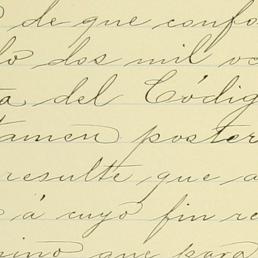 de que confo
lo dos mil oc
ta del Códig
tamen poster
resulte que a
á cuyo fin re
sino que para